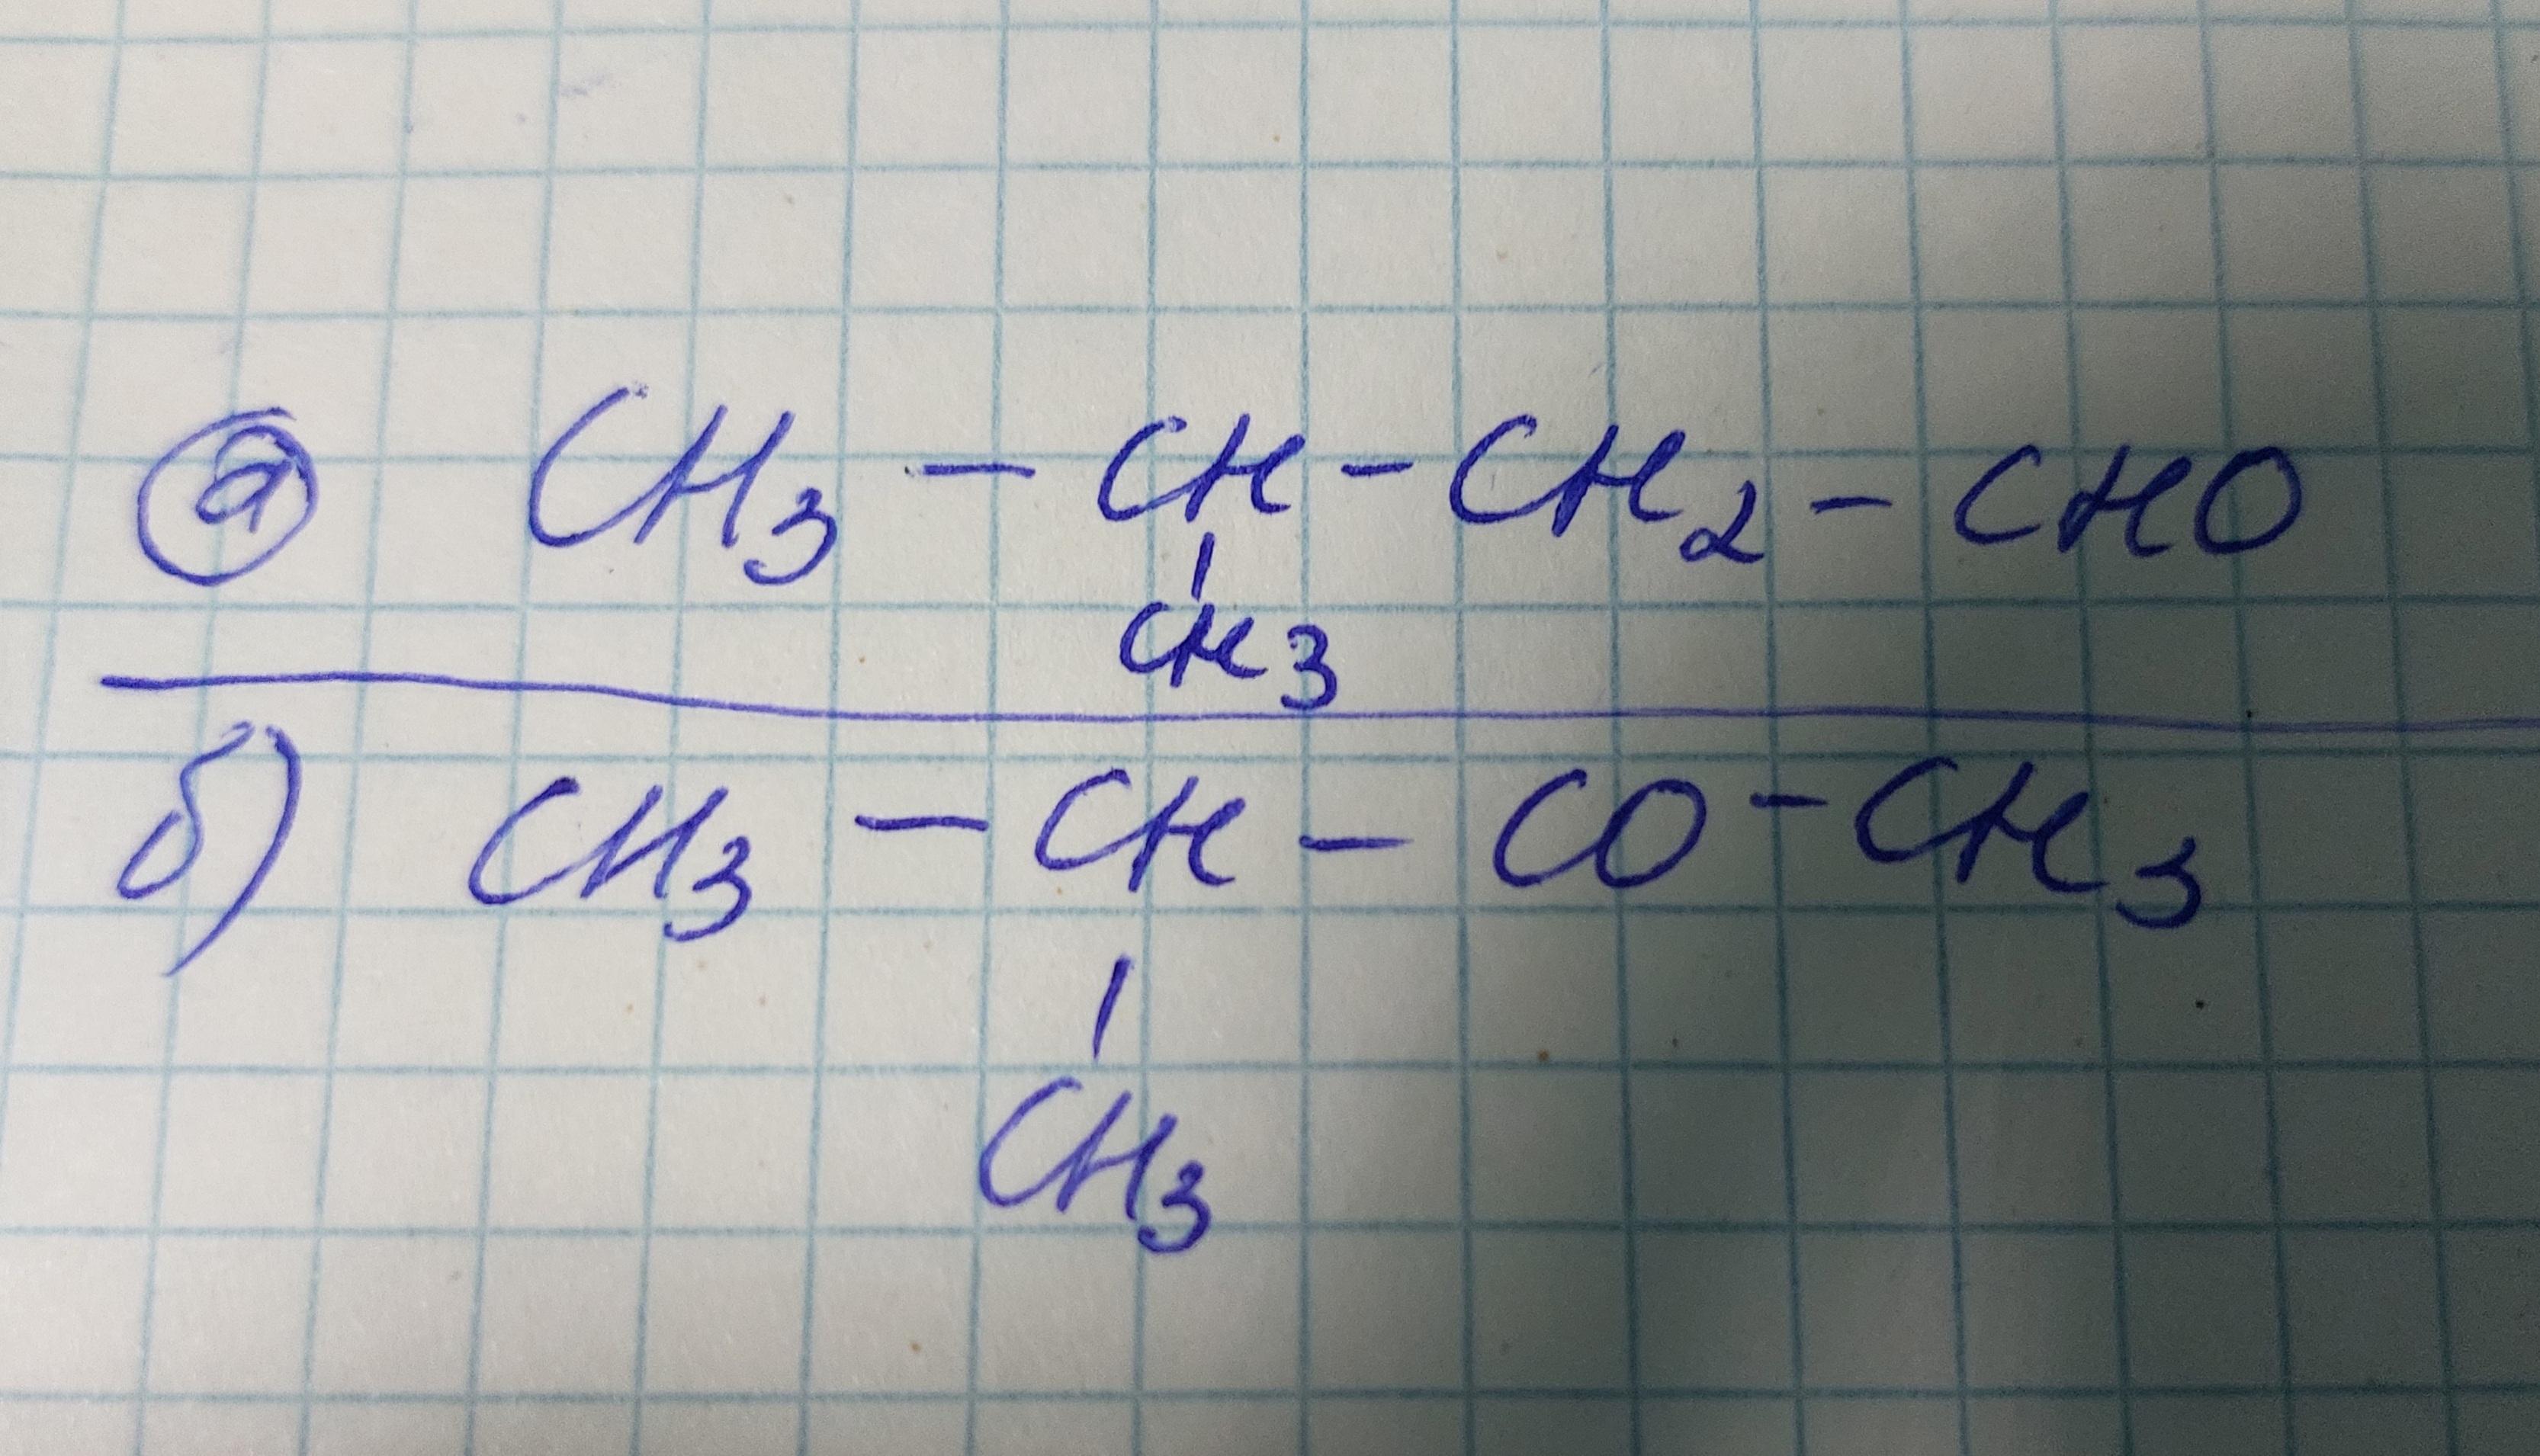 а CH3 - CH - CH2 - CHO
CH3
б) CH3 - CH - CO - CH3
CH3